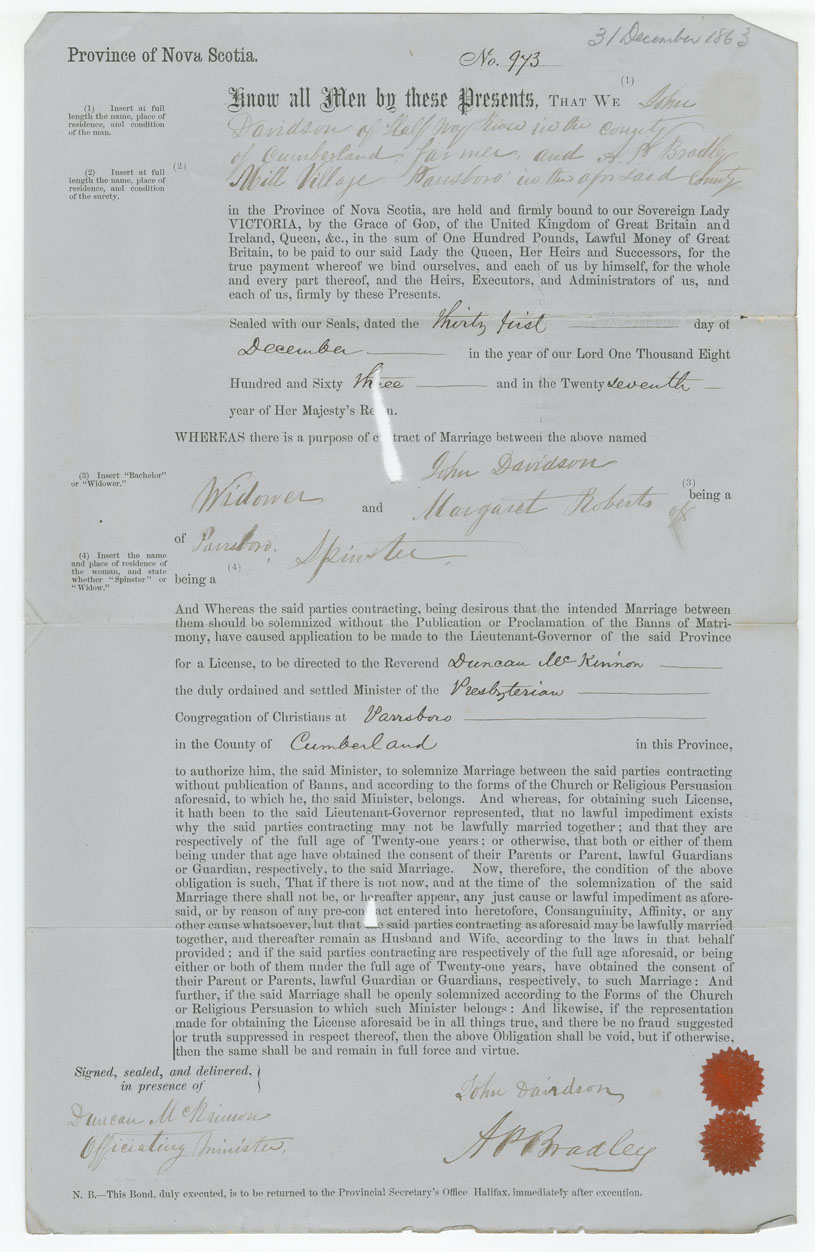 31 December 1863
Province of Nova Scotia.
No. 973
(1) Insert at full
length the name, place of
residence, and condition
of the man.
(1)
Know all Men by these Presents, THAT WE John
Davidson of Half Way River in the county
(2) Insert at full
length the name, place of
residence, and condition
of the surety.
(2)
of Cumberland farmer, and A P Bradley
Mill Village Parrsboro: in the aforsaid County
in the Province of Nova Scotia, are held and firmly bound to our Sovereign Lady
VICTORIA, by the Grace of GOD, of the United Kingdom of Great Britain and
Ireland, Queen, &c., in the sum of One Hundred Pounds, Lawful Money of Great
Britain, to be paid to our said Lady the Queen, Her Heirs and Successors, for the
true payment whereof we bind ourselves, and each of us by himself, for the whole
and every part thereof, and the Heirs, Executors, and Administrators of us, and
each of us, firmly by these Presents.
Sealed with our Seals, dated the thirty first day of
December in the year of our Lord One Thousand Eight
Hundred and Sixty three and in the Twenty seventh
year of Her Majesty's Re n.
WHEREAS there is a purpose of c tract of Marriage between the above named
(3) Insert "Bachelor"
or "Widower."
John Davidson
(3)
being a
Widower and Margaret Roberts of
of Parrsboro.
(4) Insert the name
and place of residence of
the woman, and state
whether "Spinster" or
"Widow."
(4)
being a Spinster
And Whereas the said parties contracting, being desirous that the intended Marriage between
them should be solemnized without the Publication or Proclamation of the Banns of Matri-
mony, have caused application to be made to the Lieutenant-Governor of the said Province
for a License, to be directed to the Reverend Duncan McKinnon
the duly ordained and settled Minister of the Presbyterian
Congregation of Christians at Parrsboro
in the County of Cumberland in this Province,
to authorize him, the said Minister, to solemnize Marriage between the said parties contracting
without publication of Banns, and according to the forms of the Church or Religious Persuasion
aforesaid, to which he, the said Minister, belongs. And whereas, for obtaining such License,
it hath been to the said Lieutenant-Governor represented, that no lawful impediment exists
why the said parties contracting may not be lawfully married together; and that they are
respectively of the full age of Twenty-one years; or otherwise, that both or either of them
being under that age have obtained the consent of their Parents or Parent, lawful Guardians
or Guardian, respectively, to the said Marriage. Now, therefore, the condition of the above
obligation is such, That if there is not now, and at the time of the solemnization of the said
Marriage there shall not be, or hereafter appear, any just cause or lawful impediment as afore-
said, or by reason of any pre-contract entered into heretofore, Consanguinity, Affinity, or any
other cause whatsoever, but that e said parties contracting as aforesaid may be lawfully married
together, and thereafter remain as Husband and Wife, according to the laws in that behalf
provided; and if the said parties contracting are respectively of the full age aforesaid, or being
either or both of them under the full age of Twenty-one years, have obtained the consent of
their Parent or Parents, lawful Guardian or Guardians, respectively, to such Marriage: And
further, if the said Marriage shall be openly solemnized according to the Forms of the Church
or Religious Persuasion to which such Minister belongs: And likewise, if the representation
made for obtaining the License aforesaid be in all things true, and there be no fraud suggested
or truth suppressed in respect thereof, then the above Obligation shall be void, but if otherwise,
then the same shall be and remain in full force and virtue.
Signed, sealed, and delivered,
in presence of
Duncan McKinnon
Officiating Minister,
John Davidson
A P Bradley
N. B.—This Bond, duly executed, is to be returned to the Provincial Secretary's Office Halifax, immediately after execution.